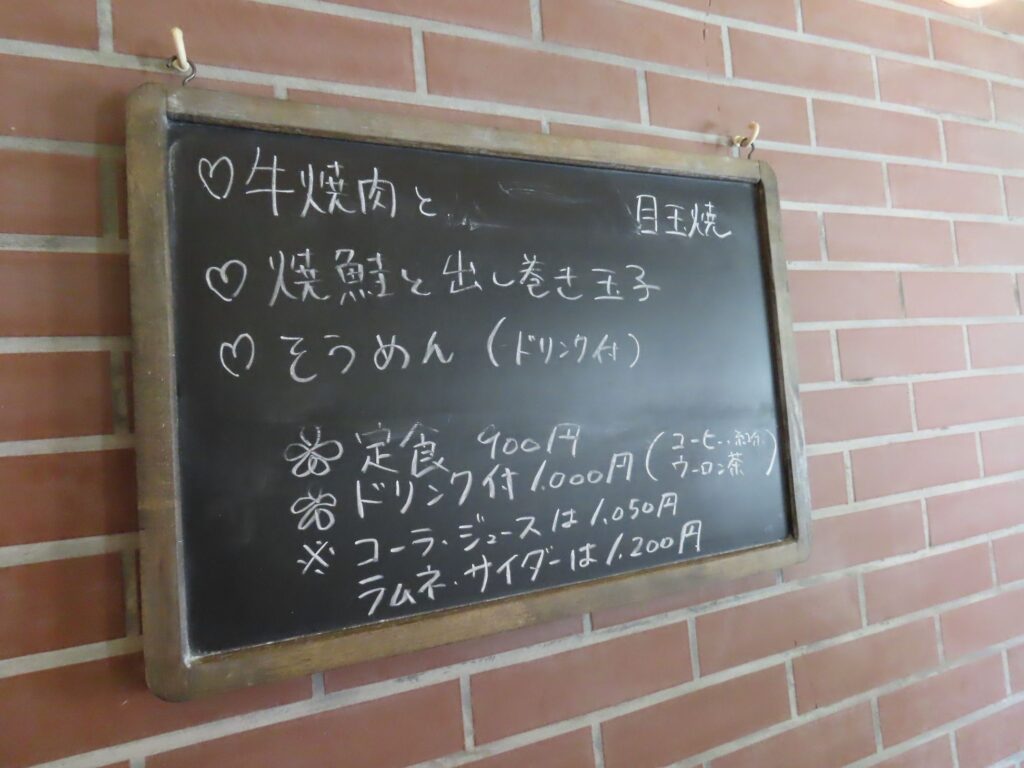 ♡牛焼肉と 目玉焼
♡焼鮭と出し巻き玉子
♡そうめん(ドリンク付)
定食 900円
ドリンク付 1.000円(コーヒー.紅茶.
ウーロン茶)
※コーラ.ジュースは1.050円
ラムネ.サイダーは1.200円